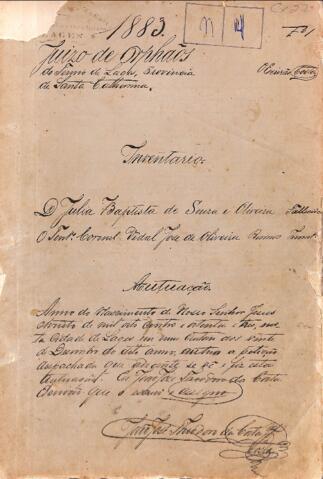 1883.
Juizo de Orphãos
do Termo de Lages, Provincia
de Santa Catharina
O Escrivão Costa
Inventario
D. Julia Baptista de Souza e Oliveira Fallecida
O Tent.e Coronel Vidal José de Oliveira Ramos Invent.
Autuação
Anno do Nascimento de Nosso Senhor Jesus
Christo de mil oito centos e oitenta e tres, nes
ta Cidade de Lages em meu Cartorio aos vinte
de Dezembro do dito anno, autuo a petição
despachada que adiante se vê; fiz esta
autuação. Eu José Theodoro da Costa
Escrivão que o escrevi e assigno
José Theodoro da Costa